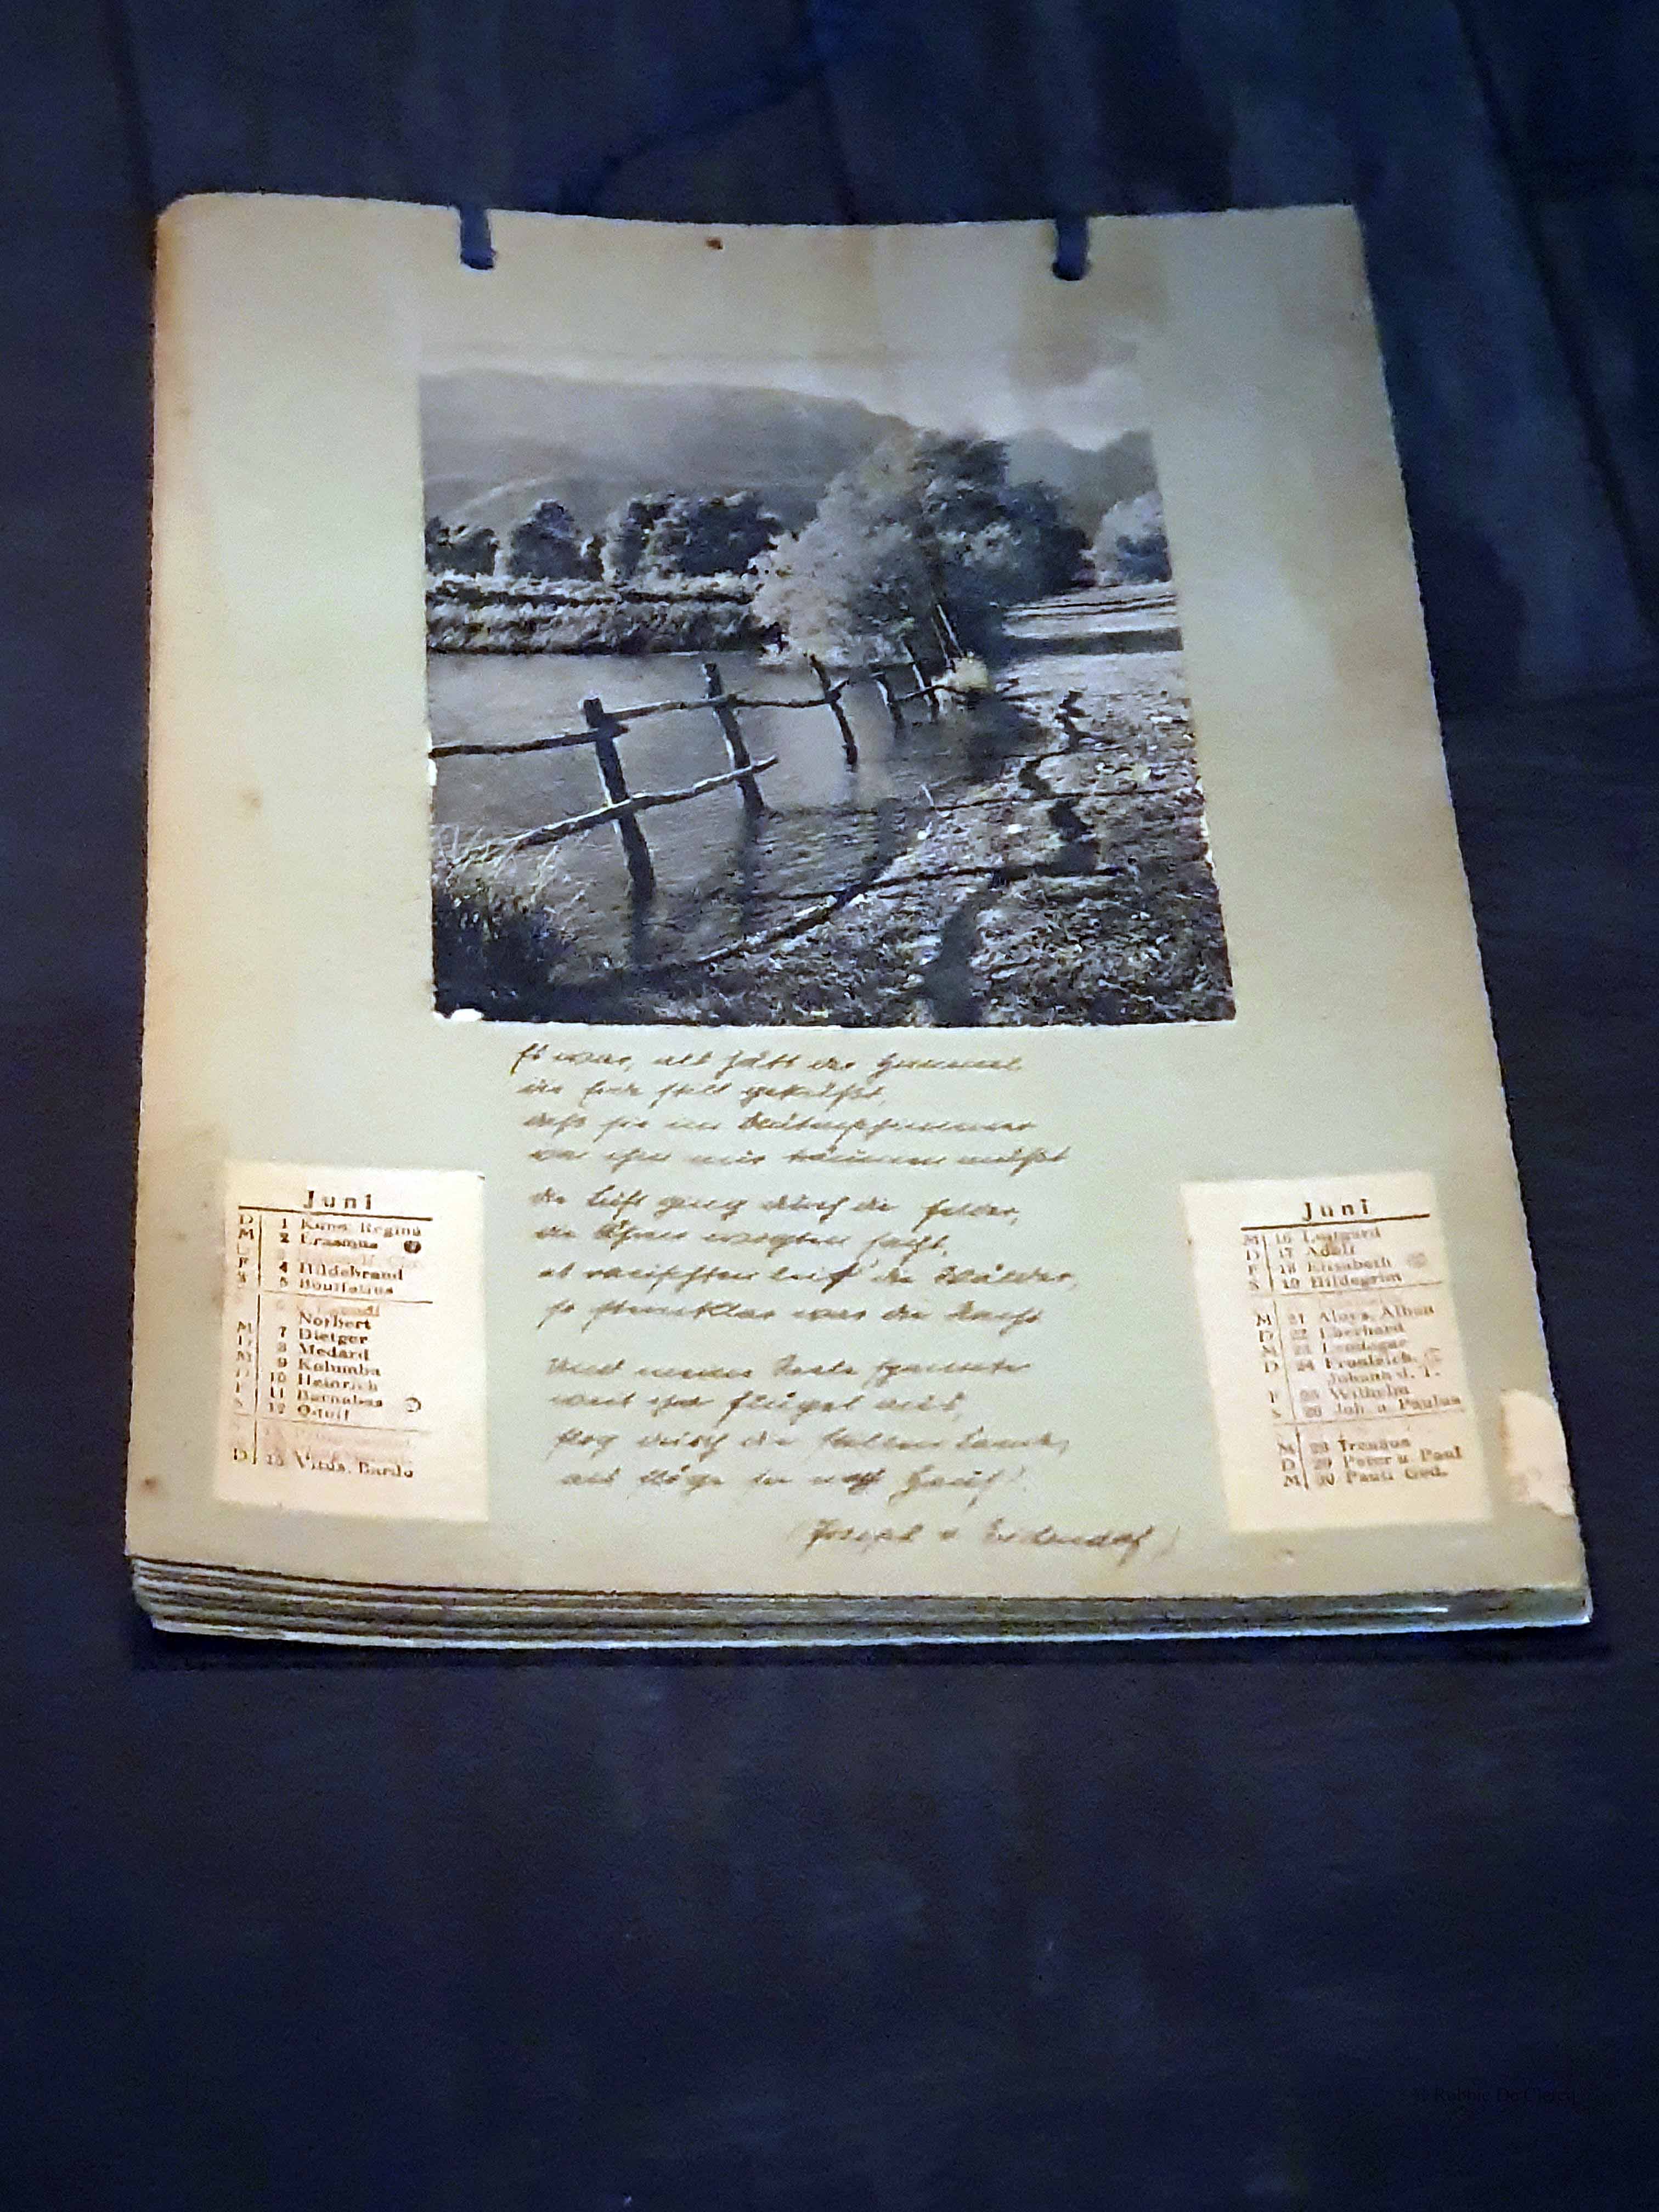 Es war, als hätt der Himmel
die Erde still geküßt,
daß sie im Blütenschimmer
von ihm nur träumen müßt
die Luft ging durch die Felder,
die Ähren wogten sacht,
es rauschten leis die Wälder,
so sternklar war die Nacht
Und meine Seele spannte
weit ihre Flügel aus,
flog durch die stillen Lande,
als flöge sie nach Haus!
(Joseph v Eichendorf)
Juni
D 1 Kuno, Regina
M 2 Erasmus
F 4 Hildebrand
S 5 Bonifatius
Norbert
M 7 Dietger
D 8 Medard
M 9 Kolumba
D 10 Heinrich
F 11 Barnabas
S 12 Odulf
D 15 Vitus, Bardo
Juni
M 16 Luitgard
D 17 Adolf
F 18 Elisabeth
S 19 Hildegrim
M 21 Aloys, Alban
D 22 Eberhard
M 23
D 24 Fronleich.
Johann d. T.
F 25 Wilhelm
S 26 Joh. u. Paulus
M 28 Irenäus
D 29 Peter u. Paul
M 30 Pauli Ged.